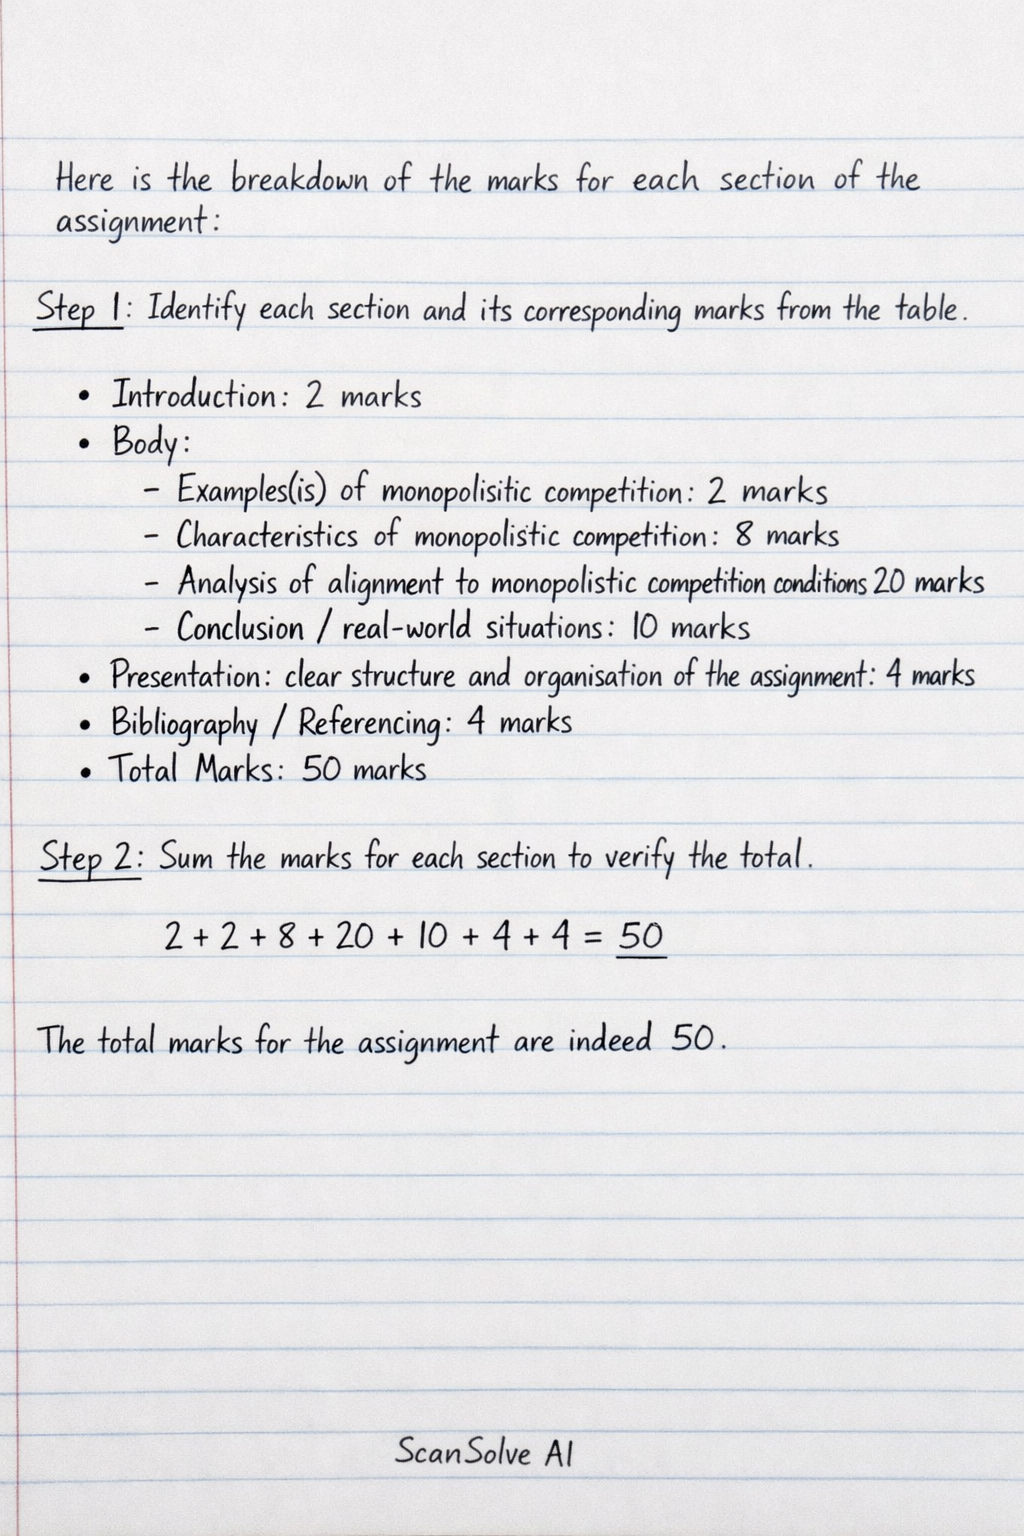 Here is the breakdown of the marks for each section of the
assignment:
Step 1: Identify each section and its corresponding marks from the table.
• Introduction: 2 marks
• Body:
– Examples(is) of monopolisitic competition: 2 marks
– Characteristics of monopolistic competition: 8 marks
– Analysis of alignment to monopolistic competition conditions 20 marks
– Conclusion / real-world situations: 10 marks
• Presentation: clear structure and organisation of the assignment: 4 marks
• Bibliography / Referencing: 4 marks
• Total Marks: 50 marks
Step 2: Sum the marks for each section to verify the total.
2 + 2 + 8 + 20 + 10 + 4 + 4 = 50
The total marks for the assignment are indeed 50.
ScanSolve AI